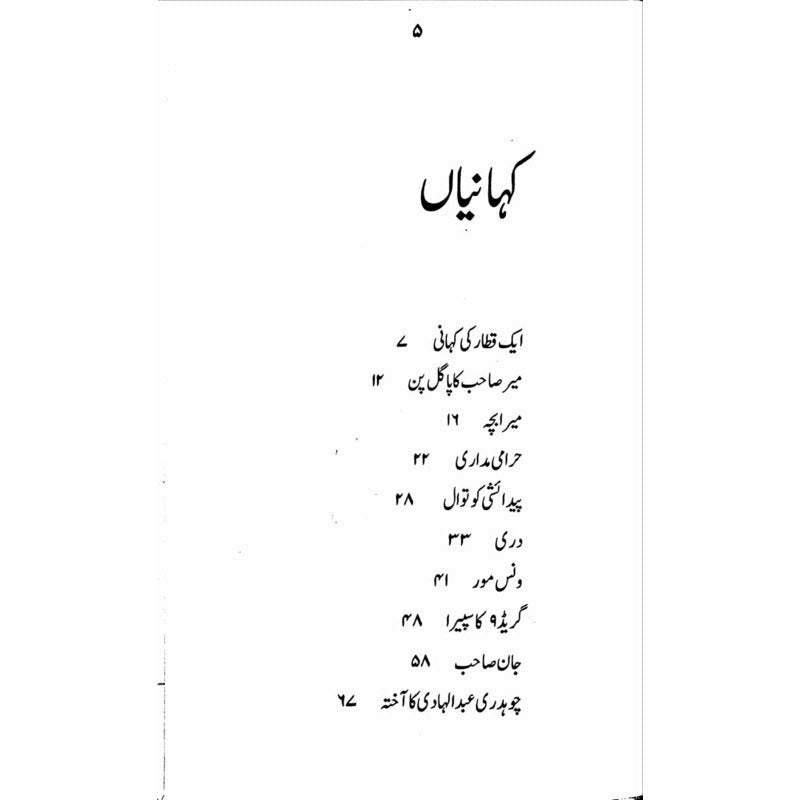 ۵
کہانیاں
ایک قطار کی کہانی ۷
میر صاحب کا پاگل پن ۱۲
میرا بچہ ۱۶
حرامی مداری ۲۲
پیدائشی کوتوال ۲۸
دری ۳۳
ونس مور ۴۱
گریڈ ۹ کا سپیرا ۴۸
جان صاحب ۵۸
چوہدری عبدالہادی کا آختہ ۶۷